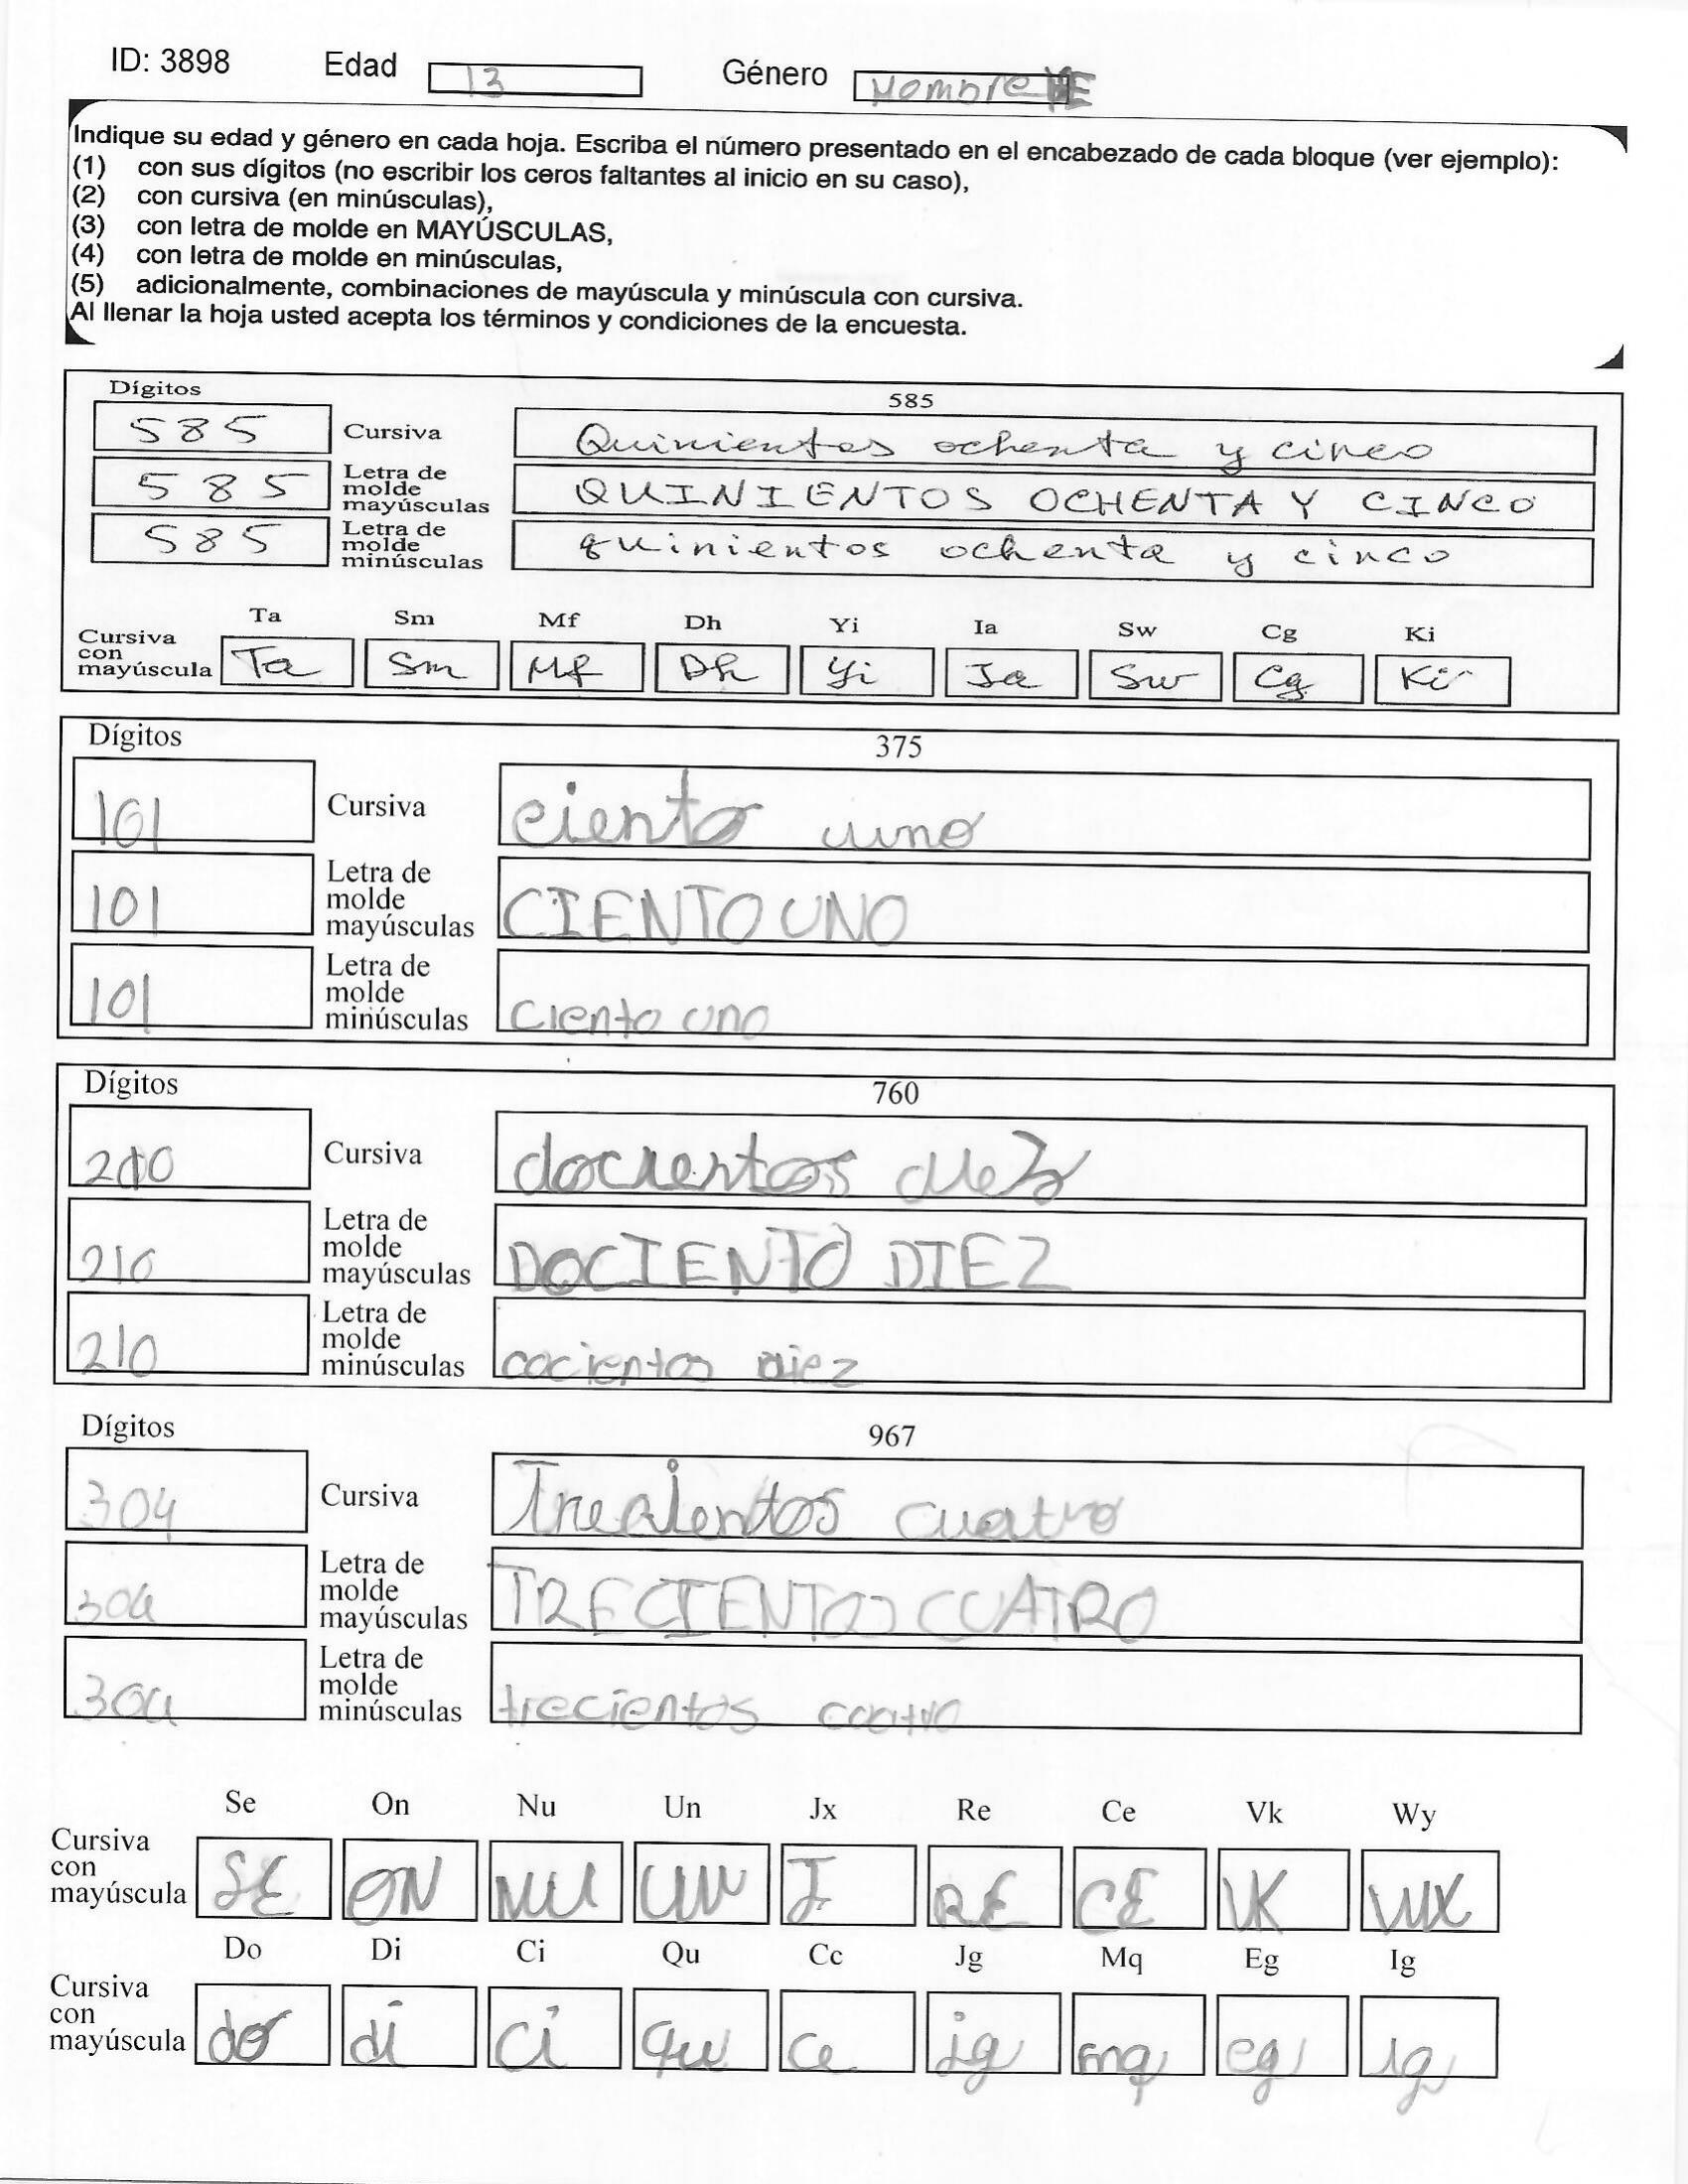 ID: 3898 Edad 13 Género Hombre
Indique su edad y género en cada hoja. Escriba el número presentado en el encabezado de cada bloque (ver ejemplo):
(1) con sus dígitos (no escribir los ceros faltantes al inicio en su caso),
(2) con cursiva (en minúsculas),
(3) con letra de molde en MAYÚSCULAS,
(4) con letra de molde en minúsculas,
(5) adicionalmente, combinaciones de mayúscula y minúscula con cursiva.
Al llenar la hoja usted acepta los términos y condiciones de la encuesta.
Dígitos 585
585 Cursiva Quinientos ochenta y cinco
585 Letra de molde mayúsculas QUINIENTOS OCHENTA Y CINCO
585 Letra de molde minúsculas quinientos ochenta y cinco
Ta Sm Mf Dh Yi Ia Sw Cg Ki
Cursiva con mayúscula Ta Sm Mf Dh Yi Ia Sw Cg Ki
Dígitos 375
101 Cursiva ciento uno
101 Letra de molde mayúsculas CIENTO UNO
101 Letra de molde minúsculas ciento uno
Dígitos 760
210 Cursiva docientos diez
210 Letra de molde mayúsculas DOCIENTO DIEZ
210 Letra de molde minúsculas docientos diez
Dígitos 967
304 Cursiva Trecientos cuatro
304 Letra de molde mayúsculas TRECIENTOS CUATRO
304 Letra de molde minúsculas trecientos coatro
Se On Nu Un Jx Re Ce Vk Wy
Cursiva con mayúscula SE ON NU UN J RE CE VK WX
Do Di Ci Qu Cc Jg Mq Eg Ig
Cursiva con mayúscula do di ci qu cc jg mq eg ig